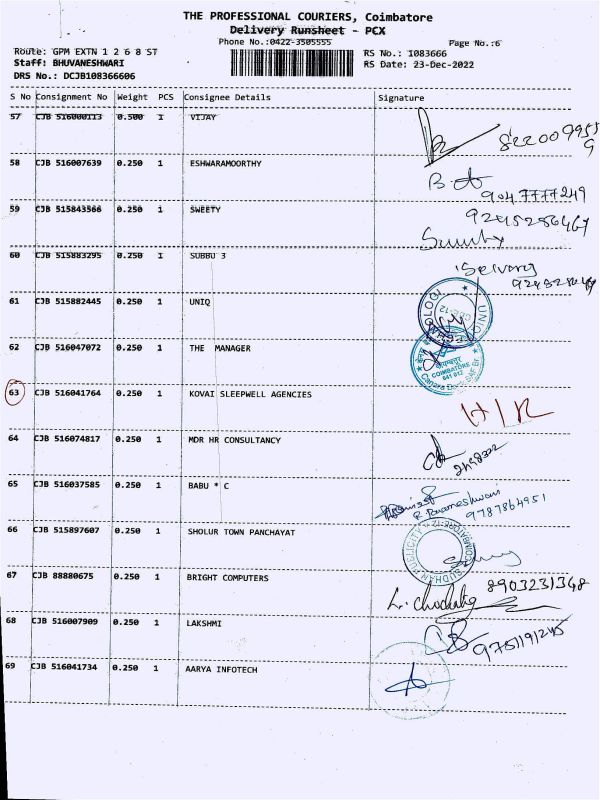 THE PROFESSIONAL COURIERS, Coimbatore
Delivery Runsheet - PCX
Phone No.:0422-3505555
Page No.:6
Route: GPM EXTN 1 2 6 8 ST
RS No.: 1083666
Staff: BHUVANESHWARI
RS Date: 23-Dec-2022
DRS No.: DCJB108366606
S No Consignment No Weight PCS Consignee Details Signature
57 CJB 516000113 0.500 1 VIJAY
58 CJB 516007639 0.250 1 ESHWARAMOORTHY
9047777249
59 CJB 515843566 0.250 1 SWEETY
9245286467
60 CJB 515883295 0.250 1 SUBBU 3
Selvaraj
61 CJB 515882445 0.250 1 UNIQ
62 CJB 516047072 0.250 1 THE MANAGER
COIMBATORE
641 012
63 CJB 516041764 0.250 1 KOVAI SLEEPWELL AGENCIES
H/R
64 CJB 516074817 0.250 1 MDR HR CONSULTANCY
65 CJB 516037585 0.250 1 BABU * C
R Parameshwari
9787864951
66 CJB 515897607 0.250 1 SHOLUR TOWN PANCHAYAT
SUDHAN PUBLICITY COIMBATORE-12
67 CJB 88880675 0.250 1 BRIGHT COMPUTERS
8903231348
68 CJB 516007909 0.250 1 LAKSHMI
9751191245
69 CJB 516041734 0.250 1 AARYA INFOTECH